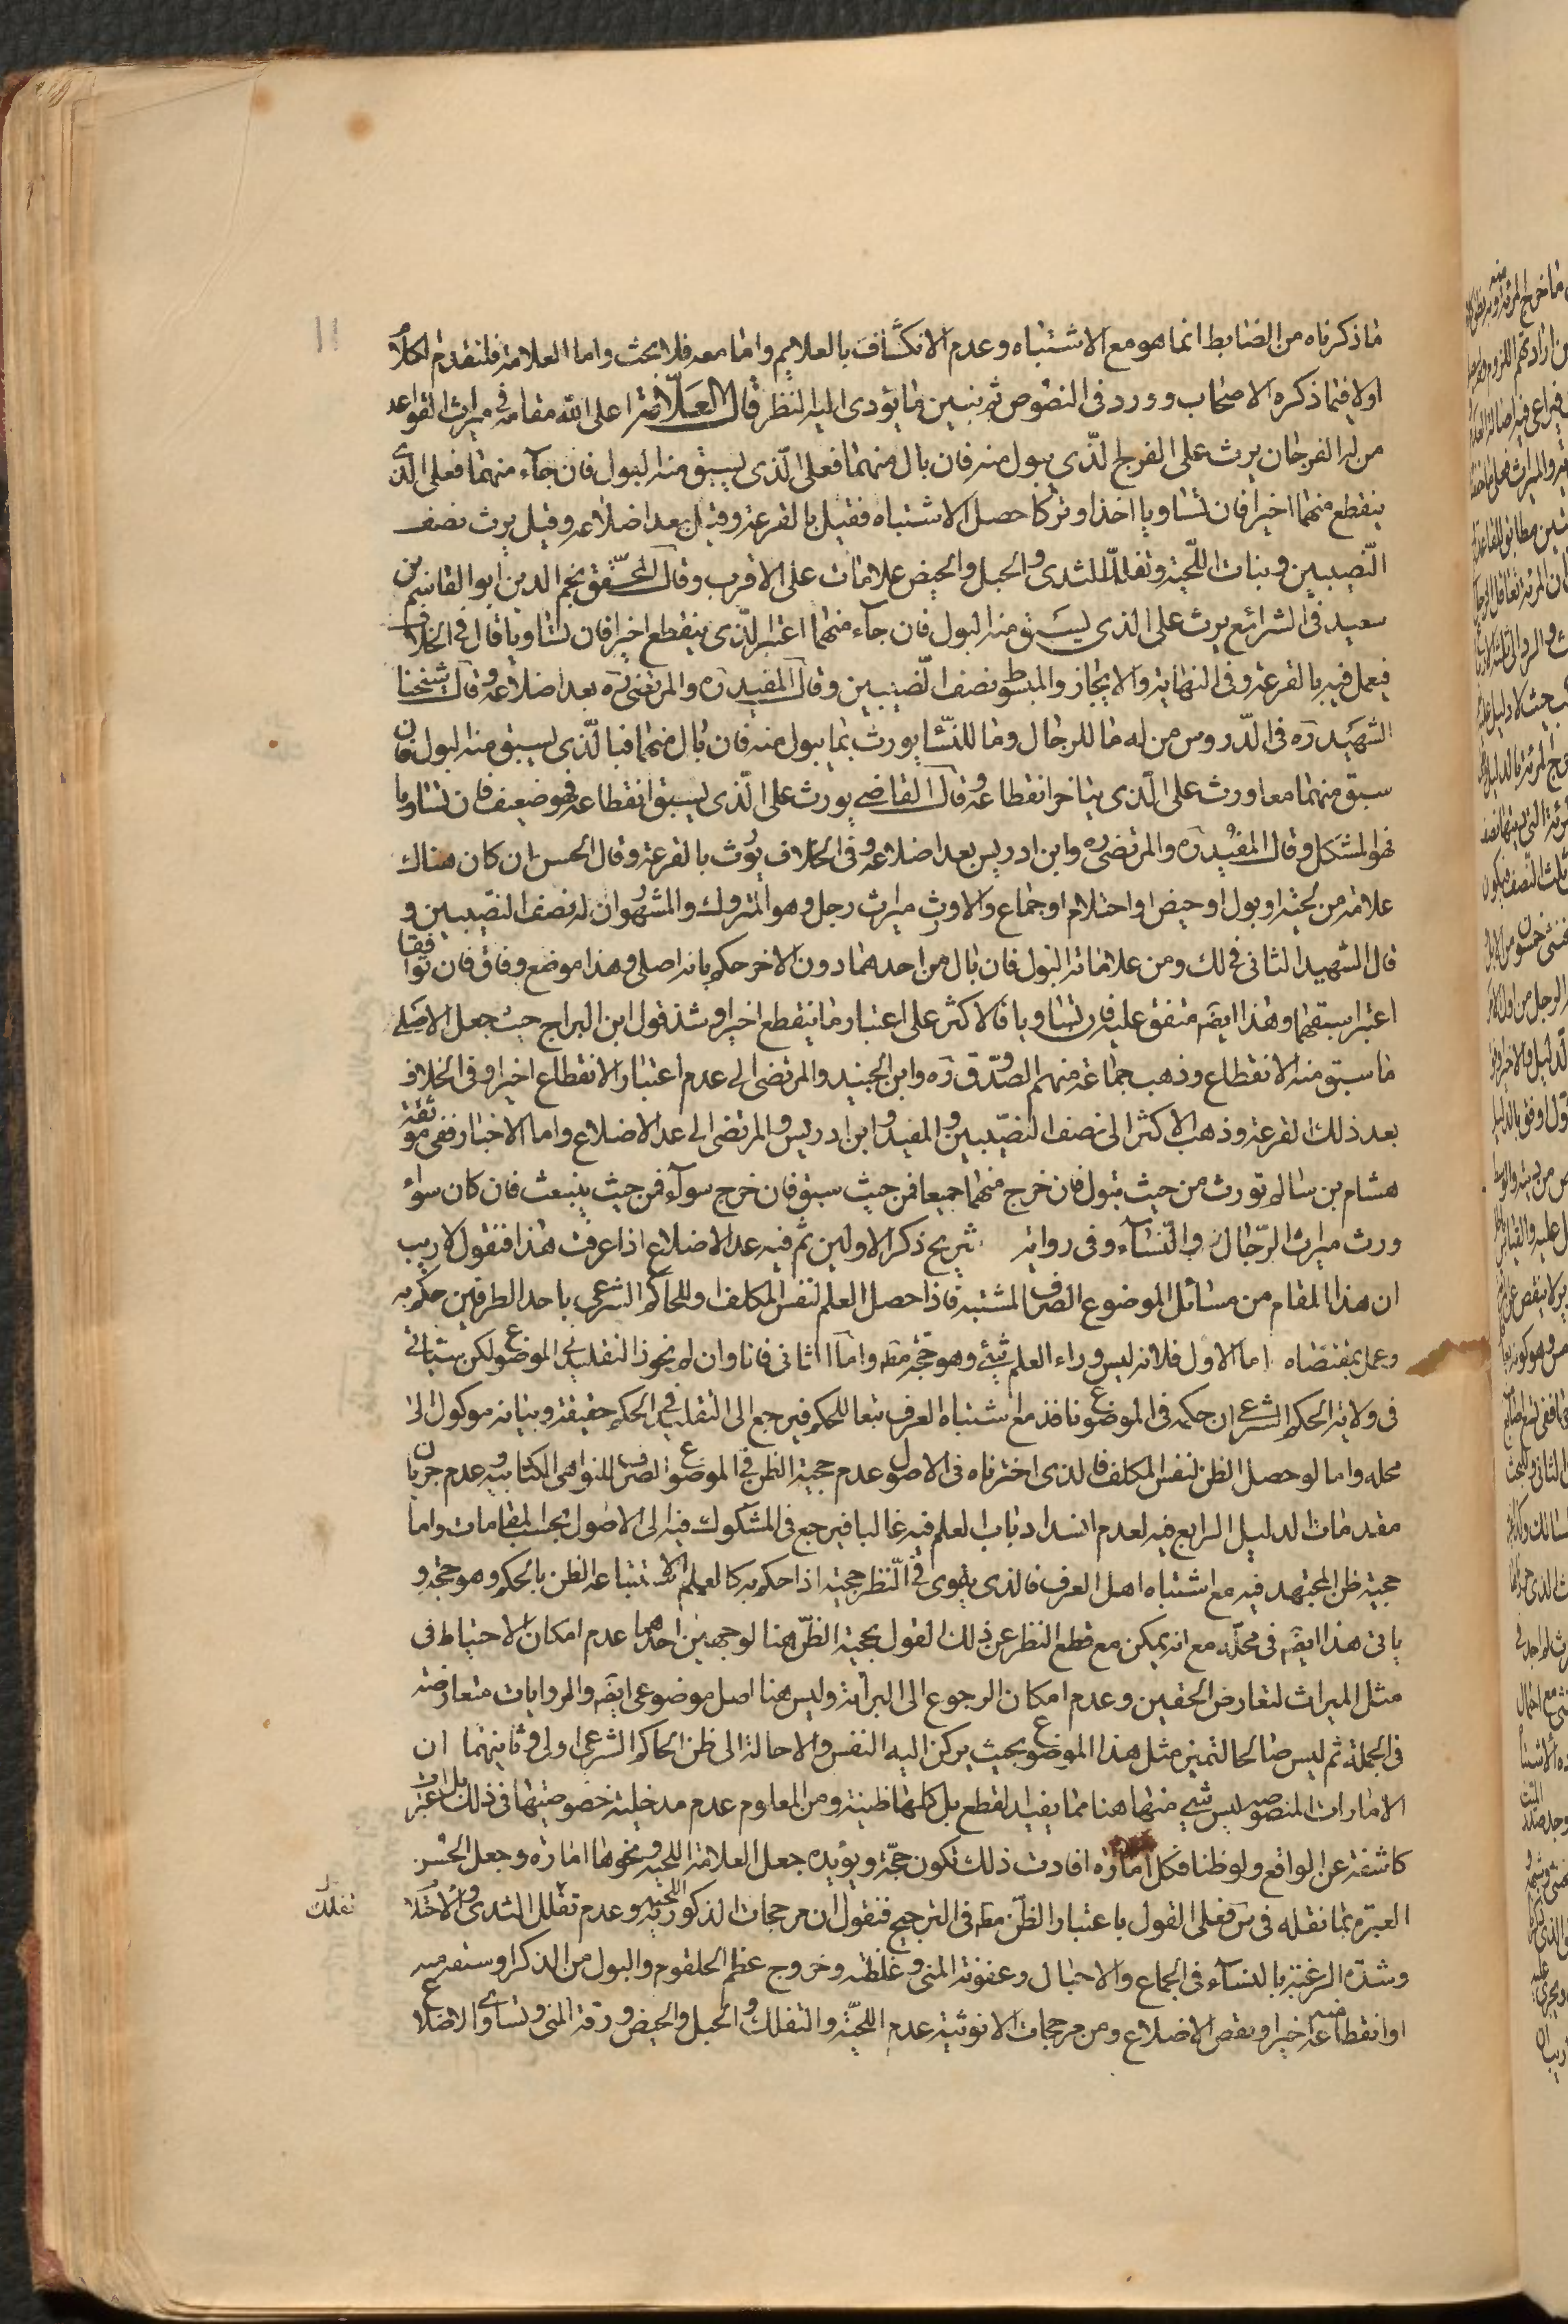 ما ذكرناه من الضابط انما هو مع الاشتباه وعدم الانكشاف بالعلايم واما معه فلا بحث واما العلامة فلنقدم الكلام
اولا فيما ذكره الاصحاب وورد في النصوص ثم نبين ما يؤدى اليه النظر قال العلامة اعلى الله مقامه في ميراث القواعد
من له الفرجان يرث على الفرج الذي يبول منه فان بال منهما فعلى الذي يسبق منه البول فان جآء منهما فعلى الذي
ينقطع منهما اخيرا فان تساويا اخذا وتركا حصل الاشتباه فقيل بالقرعة وقيل بعد اضلاعه وقيل يرث نصف
النصيبين ونبات اللحية وتفلك الثدى والحبل والحيض علامات على الاقرب وقال المحقق نجم الدين ابو القاسم بن
سعيد في الشرائع يرث على الذي يسبق منه البول فان جآء منهما اعتبر الذي ينقطع اخيرا فان تساويا قال في الخلاف
فيعمل فيه بالقرعة وفي النهاية والايجاز والمبسوط نصف النصيبين وقال المفيد ره والمرتضى ره بعد اضلاعه وقال شيخنا
الشهيد ره في الدروس من له ما للرجال وما للنسا يورث بما يبول منه فان بال منهما فبالذي يسبق منه البول فان
سبق منهما معا ورث على الذي يتاخر انقطاعه وقال القاضي يورث على الذي يسبق انقطاعه فهو ضعيف فان تساويا
فهو المشكل وقال المفيد ره والمرتضى ره وابن ادريس بعد اضلاعه وفي الخلاف يورث بالقرعة وقال الحسن ان كان هناك
علامة من لحية او بول او حيض او احتلام او جماع والا ورث ميراث رجل وهو المتروك والمشهور ان له نصف النصيبين و
قال الشهيد الثاني في لك ومن علاماته البول فان بال من احدهما دون الاخر حكم بانه اصلي وهذا موضع وفاق فان توافقا
اعتبر اسبقهما وهذا ايضه متفق عليه فان تساويا فالاكثر على اعتبار ما ينقطع اخيرا وشذ قول ابن البراج حيث جعل الاصلي
ما سبق منه الانقطاع وذهب جماعة منهم الصدوق ره وابن الجنيد والمرتضى الى عدم اعتبار الانقطاع اخيرا وفي الخلاف
بعد ذلك القرعة وذهب الاكثر الى نصف النصيبين والمفيد وابن ادريس والمرتضى الى عد الاضلاع واما الاخبار ففي موثقة
هشام بن سالم تورث من حيث يبول فان خرج منهما جميعا فمن حيث سبق فان خرج سوآء فمن حيث ينبعث فان كان سواء
ورث ميراث الرجال والنسآء وفي رواية شريح ذكر الاولين ثم فيه عد الاضلاع اذا عرفت هذا فنقول لا ريب
ان هذا المقام من مسائل الموضوع الصرف المشتبه فاذا حصل العلم لنفس المكلف او للحاكم الشرعي باحد الطرفين حكم به
وعمل بمقتضاه اما الاول فلانه ليس وراء العلم شيء وهو حجة مطه واما الثاني فانا وان لم نجوز التقليد في الموضوع لكن سياتي
في ولاية الحاكم الشرعي ان حكمه في الموضوع نافذ مع اشتباه العرف تبعا للحكم فيرجع الى التقليد في الحكم حقيقة وبيانه موكول الى
محله واما لو حصل الظن لنفس المكلف فالذي اخترناه في الاصول عدم حجية الظن في الموضوع الصرف للنواهي الكتابيه وعدم جريان
مقدمات الدليل الرابع فيه لعدم انسداد باب العلم فيه غالبا فيرجع في المشكوك فيه الى الاصول بحسب المقامات واما
حجية ظن المجتهد فيه مع اشتباه اهل العرف فالذي يقوى في النظر حجيته اذا حكم به كالعلم لاستتباعه الظن بالحكم وهو حجة و
ياتي هذا ايضه في محله مع انه يمكن مع قطع النظر عن ذلك القول بحجية الظن هنا لوجهين احدهما عدم امكان الاحتياط في
مثل الميراث لتعارض الحقين وعدم امكان الرجوع الى البرائة وليس هنا اصل موضوعي ايضه والروايات متعارضة
في الجملة ثم ليس صالحا لتميز مثل هذا الموضوع بحيث يركن اليه النفس والاحالة الى ظن الحاكم الشرعي اولى وثانيهما ان
الامارات المنصوصه ليس شيء منها هنا مما يفيد القطع بل كلها ظنية ومن المعلوم عدم مدخلية خصوصيتها في ذلك بل اعتبرت
كاشفة عن الواقع ولو ظنا فكل امارة افادت ذلك تكون حجة ويؤيده جعل العلامة اللحيه ونحوها امارة وجعل الحسن
العبرة بما نقله في س فعلى القول باعتبار الظن مطه في الترجيح فنقول ان مرجحات الذكوريه اللحيه وعدم تفلك الثدى والاحتلام
تفلك
وشدة الرغبة بالنسآء في الجماع والاحبال وعفونة المني وغلظته وخروج عظم الحلقوم والبول من الذكر او سبقه منه
او انقطاعه منه اخيرا ونقص الاضلاع ومن مرجحات الانوثية عدم اللحية والتفلك والحبل والحيض ورقة المني وتساوي الاضلاع